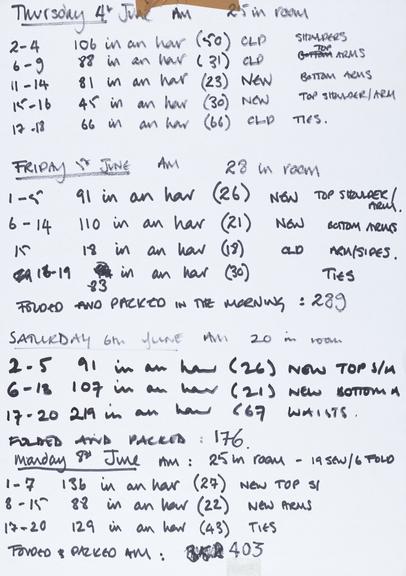 Thursday 4th June AM 25 in room
2-4 106 in an har (50) OLD SHOULDERS
6-9 88 in an har (31) OLD TOP ARMS
11-14 81 in an har (23) NEW BOTTOM ARMS
15-16 45 in an har (30) NEW TOP SHOULDER/ARM
17-18 66 in an har (66) OLD TIES.
FRIDAY 5th JUNE AM 28 in room
1-5 91 in an har (26) NEW TOP SHOULDER/ARM.
6-14 110 in an har (21) NEW BOTTOM ARMS
15 18 in an har (18) OLD ARM/SIDES.
18-19 83 in an har (30) TIES
FOLDED AND PACKED IN THE MORNING : 289
SATURDAY 6th JUNE AM 20 in room
2-5 91 in an har (26) NEW TOP S/A
6-18 107 in an har (21) NEW BOTTOM A
17-20 219 in an har (67 WAISTS.
FOLDED AND PACKED : 176.
Monday 8th June AM : 25 in room - 19 SEW/6 FOLD
1-7 136 in an har (27) NEW TOP S/
8-15 88 in an har (22) NEW ARMS
17-20 129 in an har (43) TIES
FOLDED & PACKED AM : 403